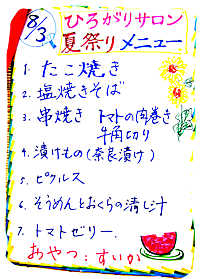 8/3
ひろがりサロン
夏祭りメニュー
1. たこ焼き
2. 塩焼きそば
3. 串焼き トマトの肉巻き
牛角切り
4. 漬けもの(奈良漬け)
5. ピクルス
6. そうめんとおくらの清し汁
7. トマトゼリー.
おやつ:すいか